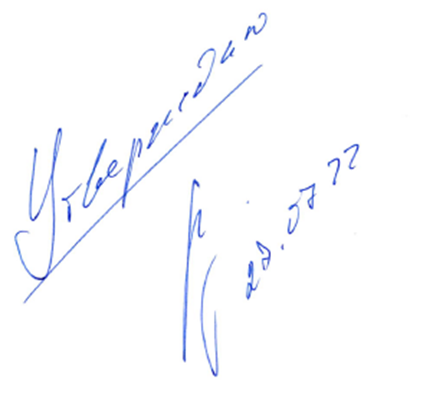 Утверждаю
27.07.22